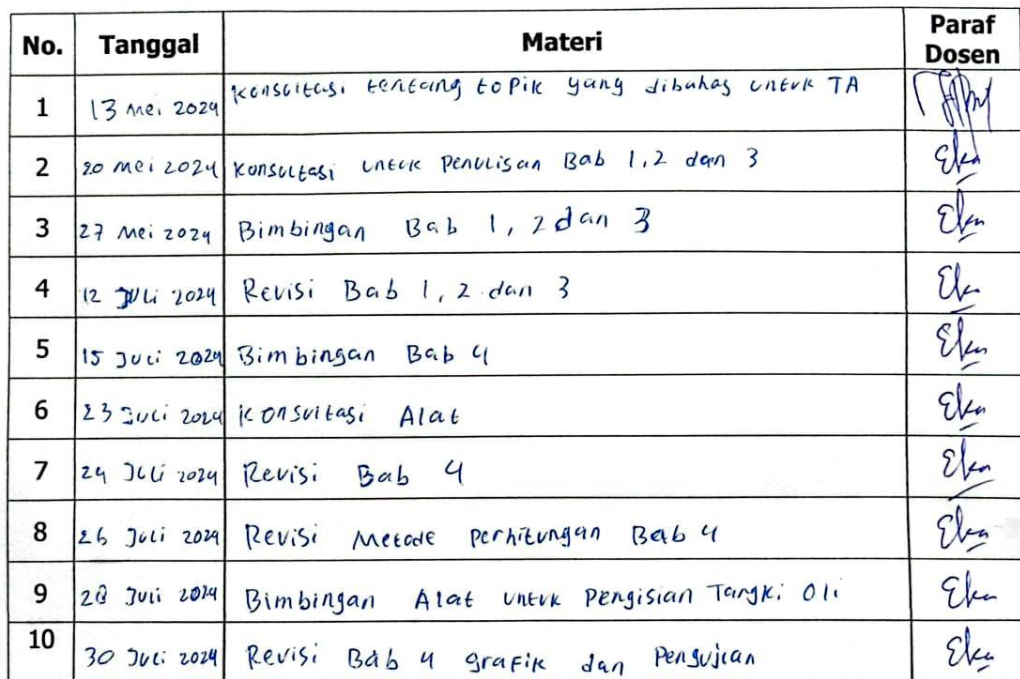 No. Tanggal Materi Paraf Dosen
1 13 Mei 2024 Konsultasi tentang topik yang dibahas untuk TA
2 20 Mei 2024 Konsultasi untuk Penulisan Bab 1,2 dan 3 Eka
3 27 Mei 2024 Bimbingan Bab 1, 2 dan 3 Eka
4 12 Juli 2024 Revisi Bab 1, 2 dan 3 Eka
5 15 Juli 2024 Bimbingan Bab 4 Eka
6 23 Juli 2024 Konsultasi Alat Eka
7 24 Juli 2024 Revisi Bab 4 Eka
8 26 Juli 2024 Revisi Metode Perhitungan Bab 4 Eka
9 Juli 2024 Bimbingan Alat untuk Pengisian Tangki Oli Eka
10 30 Juli 2024 Revisi Bab 4 grafik dan Pengujian Eka